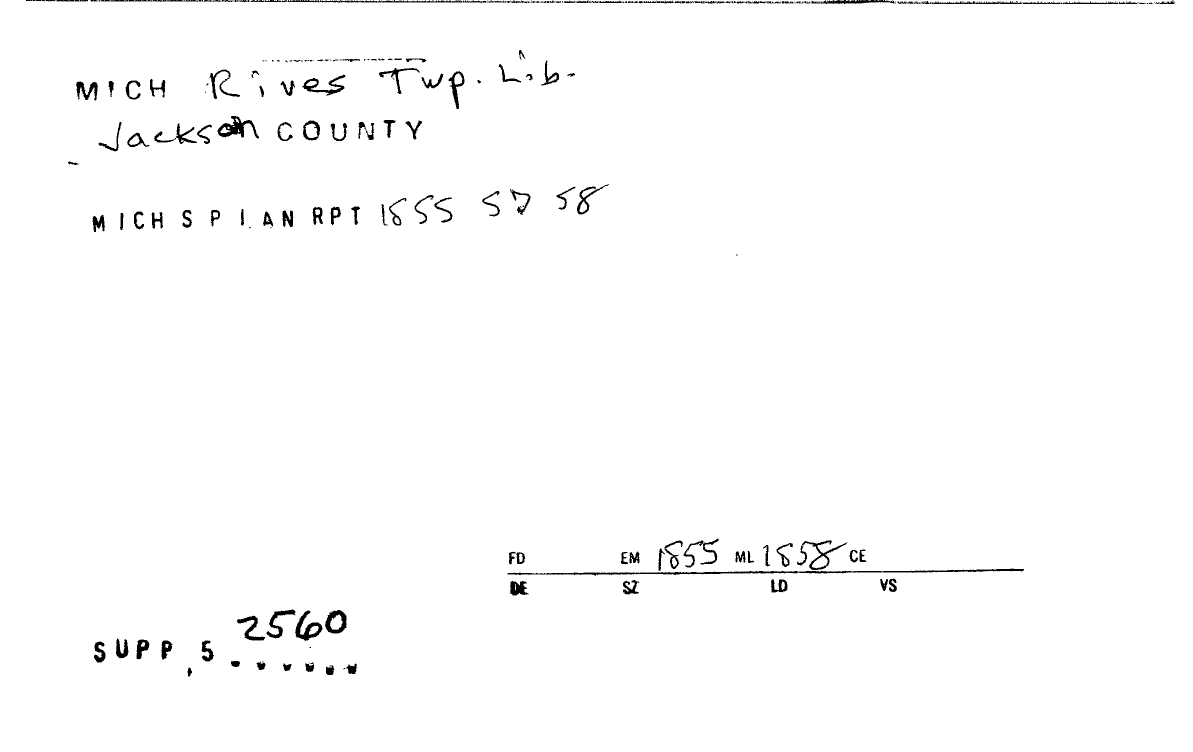 MICH Rives Twp. Lib.
Jackson COUNTY
MICH S P I AN RPT 1855 57 58
FD EM 1855 ML 1858 CE
DE SZ LD VS
2560
SUPP, 5 ......